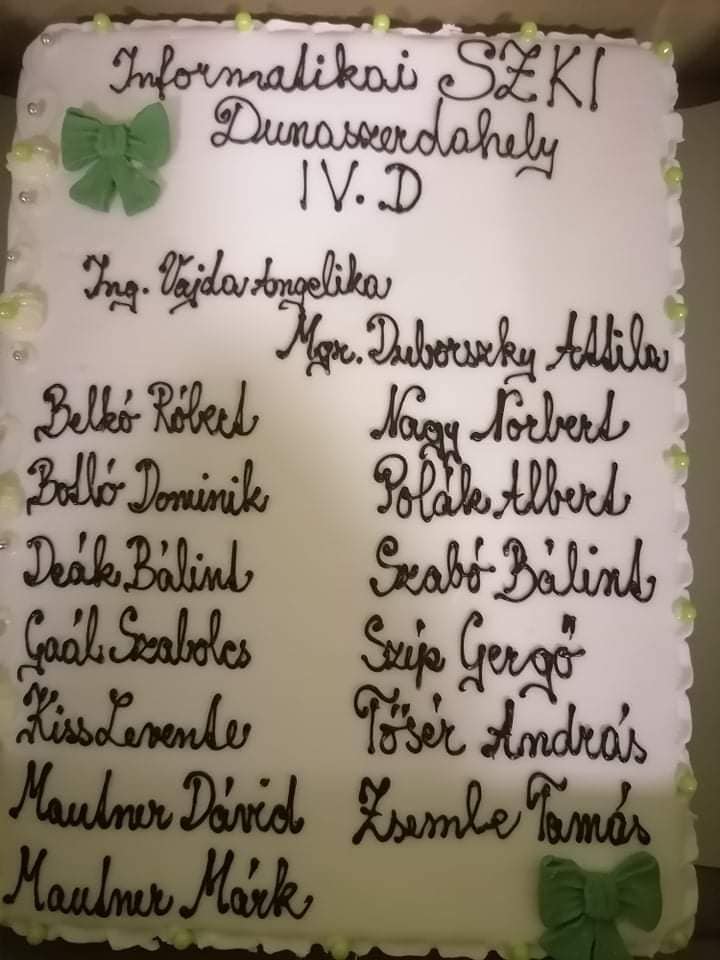 Informatikai SZKI
Dunaszerdahely
IV. D
Ing. Vajda Angelika
Mgr. Duborszky Attila
Belkó Róbert
Botló Dominik
Deák Bálint
Gaál Szabolcs
Kiss Levente
Mautner Dávid
Mautner Márk
Nagy Norbert
Polák Albert
Szabó Bálint
Szíp Gergő
Tősér András
Zsembe Tamás